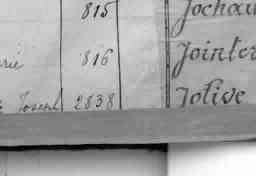 815 Jochau
rie 816 Jointer
Joseph 2838 Jolive